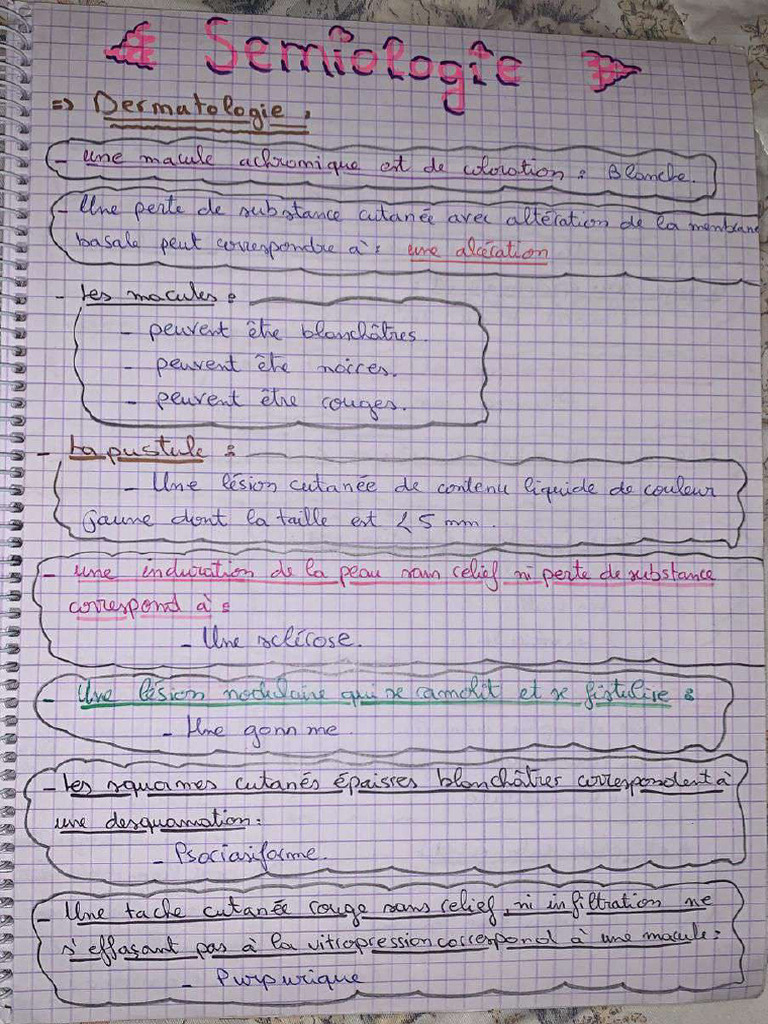 Semiologie
=> Dermatologie.
- une macule achromique est de coloration : Blanche.
- Une perte de substance cutanée avec altération de la membrane
basale peut correspondre à : une ulcération
- Les macules :
- peuvent être blanchâtres.
- peuvent être noires.
- peuvent être rouges.
- La pustule :
- Une lésion cutanée de contenu liquide de couleur
Jaune dont la taille est < 5 mm.
- une induration de la peau sans relief ni perte de substance
correspond à :
- Une sclérose.
- Une lésion nodulaire qui se ramolit et se fistulise :
- Une gomme.
- Les squames cutanés épaisses blanchâtres correspondent à
une desquamation :
- Psoriasiforme.
- Une tache cutanée rouge sans relief, ni infiltration ne
s'effaçant pas à la vitropression correspond à une macule :
- Purpurique